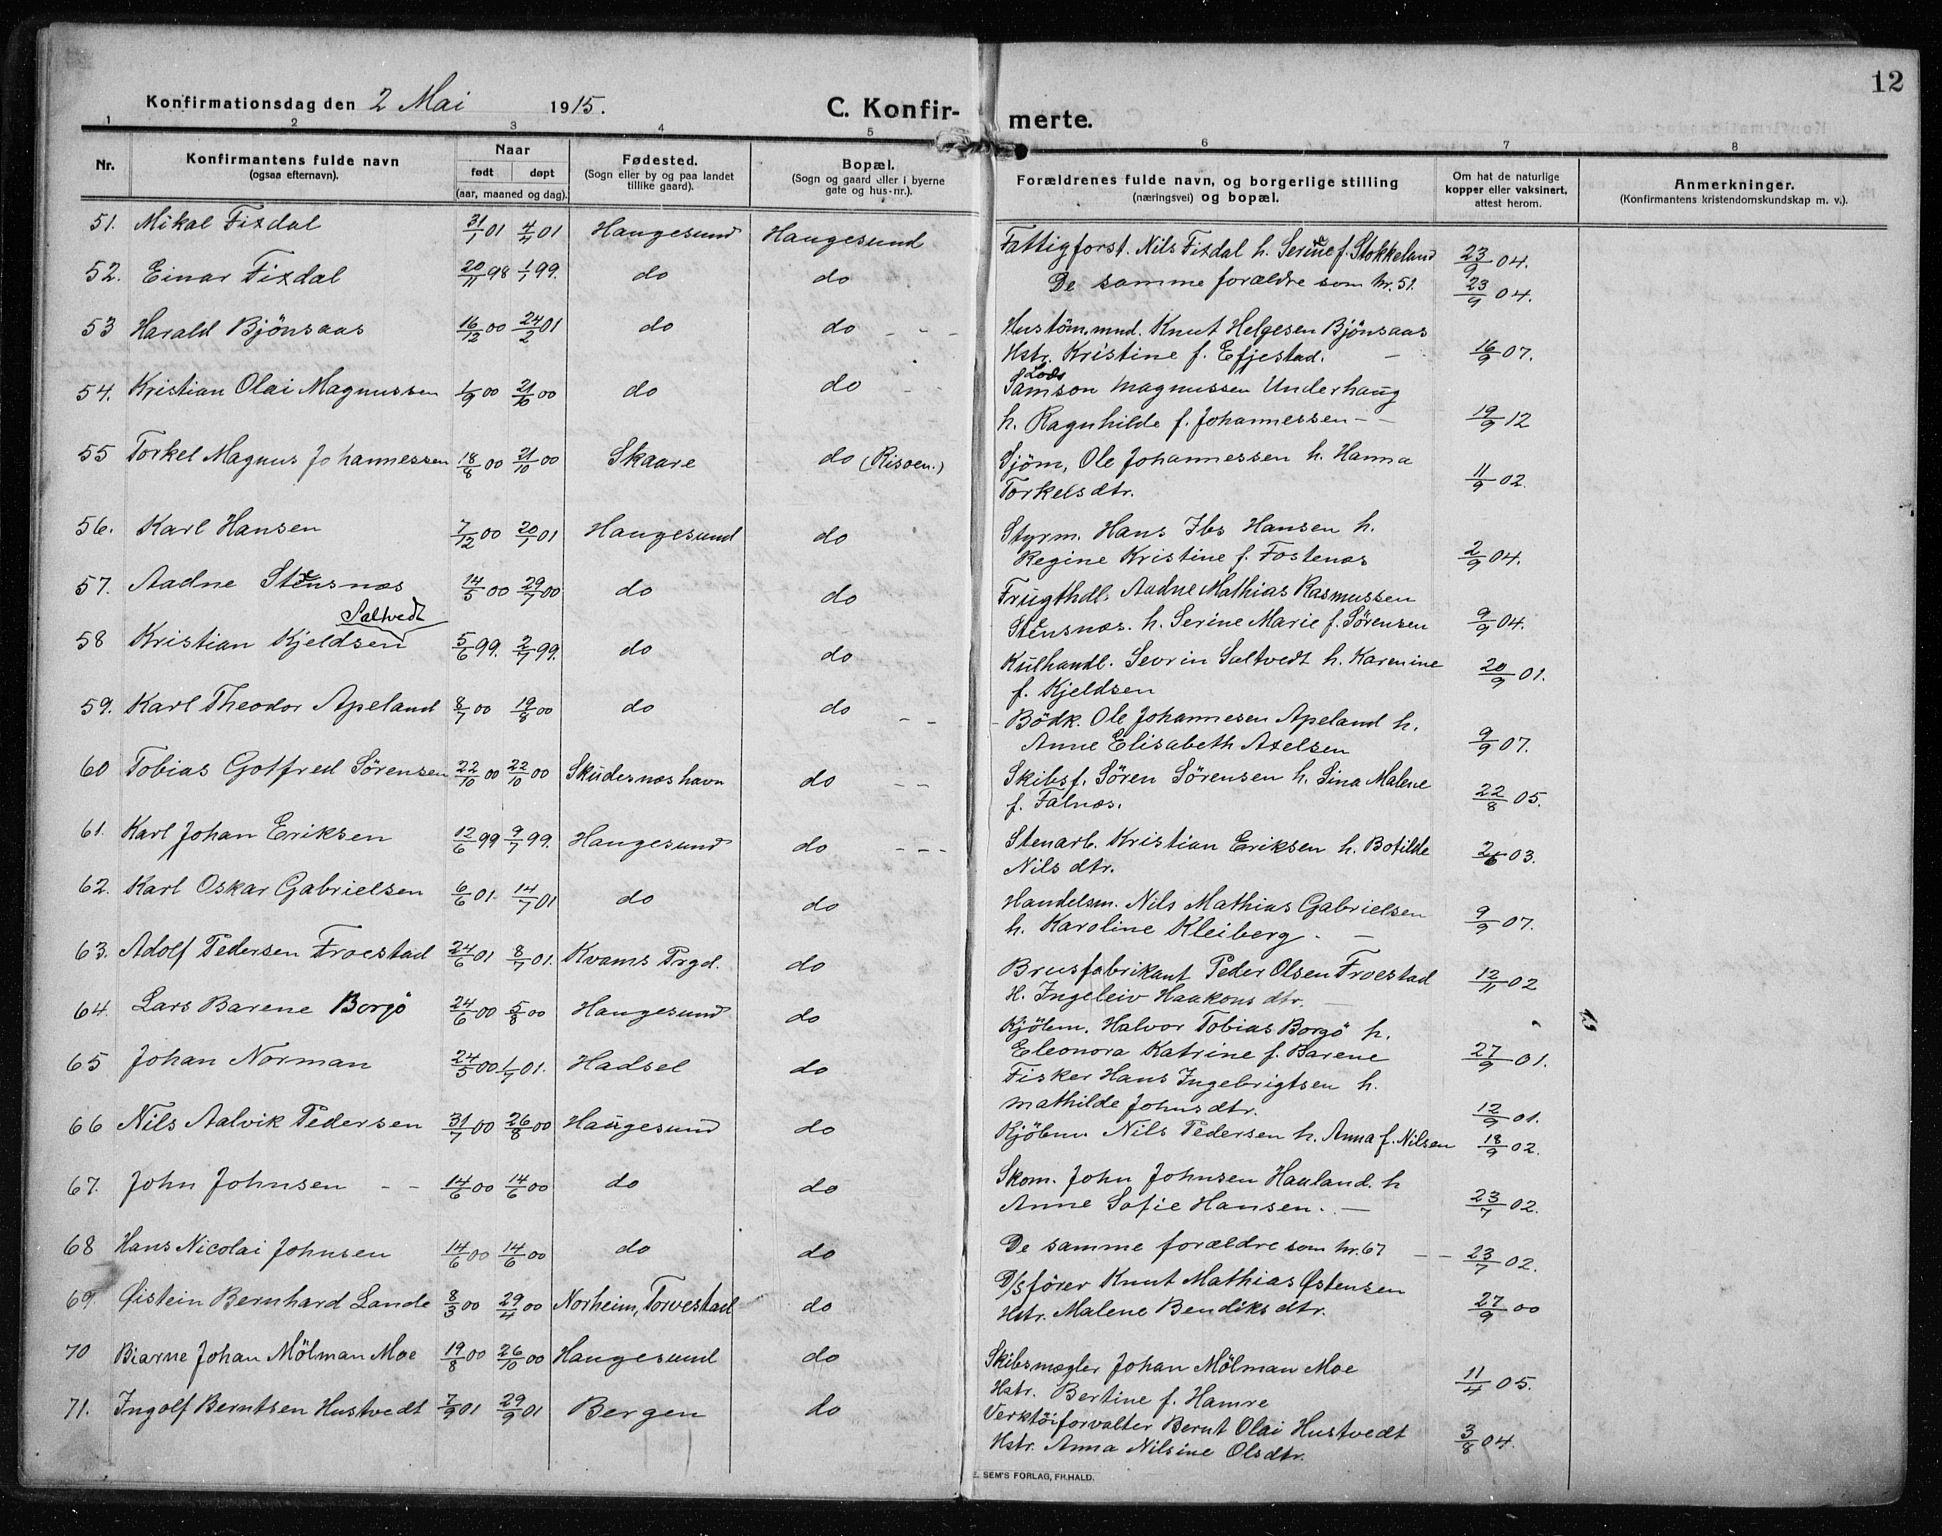 12
Konfirmationsdag den 2 Mai 1915.
C. Konfir- merte.
1 2 3 4 5 6 7 8
Nr. Konfirmantens fulde navn (ogsaa efternavn). Naar født døpt (aar, maaned og dag). Fødested. (Sogn eller by og paa landet tillike gaard). Bopæl. (Sogn og gaard eller i byerne gate og hus-nr.). Forældrenes fulde navn, og borgerlige stilling (næringsvei) og bopæl. Om hat de naturlige kopper eller vaksinert, attest herom. Anmerkninger. (Konfirmantens kristendomskundskap m. v.).
51. Mikal Fixdal 31/1 01 4/4 01 Haugesund Haugesund Fattigforst. Nils Fixdal h. Serine f. Stokkeland 23/9 04.
52. Einar Fixdal 20/11 98 1/1 99. do do De samme forældre som nr. 51. 23/9 04.
53 Harald Bjönsaas 16/12 00 24/2 01 do do - - Hustöm.mnd. Knut Helgesen Bjönsaas
Hstr. Kristine f. Efjestad. - 16/9 07.
54. Kristian Olai Magnussen 1/9 00 21/10 00 do do Lods Samson Magnussen Underhaug
h. Ragnhilde f. Johannessen - - 19/9 12
55 Torkel Magnus Johannessen 18/8 00 21/10 00 Skaare do (Risøen.) Sjöm, Ole Johannessen h. Hanna
Torkelsdtr. 11/9 02.
56. Karl Hansen 7/12 00 20/1 01 Haugesund do Styrm. Hans Ibs Hansen h.
Regine Kristine f. Fostenæs 2/9 04.
57. Aadne Stensnæs 14/5 00 29/7 00 do do Frugthdl. Aadne Mathias Rasmussen
Stensnæs. h. Serine Marie f. Sørensen 9/9 04.
58 Kristian Kjeldsen Saltvedt 5/6 99. 2/7 99. do do Kulhandl. Sevrin Saltvedt h. Karenine
f. Kjeldsen 20/9 01.
59. Karl Theodor Apeland 8/7 00 19/8 00 do do - - Bödk. Ole Johannesen Apeland h.
Anne Elisabeth Axelsen 9/9 07.
60 Tobias Gotfred Sörensen 22/10 00 22/10 00 Skudesnæshavn do - - Skibsf. Sören Sörensen h. Sina Malene
f. Falnæs. 22/8 05.
61. Karl Johan Eriksen 12/6 99 9/7 99. Haugesund do - - - Stenarb. Kristian Eriksen h. Botilde
Nilsdtr. 03.
62. Karl Oskar Gabrielsen 6/6 01. 14/7 01 do do Handelsm. Nils Mathias Gabrielsen
h. Karoline Kleiberg. - 9/9 07.
63. Adolf Pedersen Froestad 24/6 01 8/7 01. Kvams Prgd. do Brusfabrikant Peder Olsen Froestad
H. Ingeleiv Haakonsdtr. - 12/11 02
64. Lars Barene Borgö 24/6 00 5/8 00 Haugesund do Kjöbm. Halvor Tobias Borgö h.
Eleonora Katrine f. Barene 27/9 01.
65 Johan Norman 24/5 00 1/7 01. Hadsel do Fisker Hans Ingebrigtsen h.
Mathilde Johnsdtr. 12/9 01.
66 Nils Aalvik Pedersen 31/7 00 26/8 00 Haugesund do Kjöbm. Nils Pedersen h. Anna f. Nilsen 18/9 02.
67. John Johnsen - - 14/6 00 14/6 00 do do Skom. John Johnsen Hauland. h
Anne Sofie Hansen. - 23/7 02.
68 Hans Nicolai Johnsen 14/6 00 14/6 00 do do De samme forældre som nr. 67 - - 23/7 02.
69. Øistein Bernhard Lande 8/3 00 29/4 00 Norheim, Torvestad do D/Sfører Knut Mathias Østensen
Hstr. Malene Bendiksdtr. 27/9 00
70 Bjarne Johan Mölman Moe 19/8 00 26/10 00 Haugesund do Skibsmægler Johan Mölman Moe
Hstr. Bertine f. Hamre 11/4 05.
71. Ingolf Berntsen Hustvedt 7/9 01 29/9 01 Bergen do Verktöiforvalter Bernt Olai Hustvedt
Hstr. Anna Nilsine Olsdtr. 3/8 04.
E. SEM'S FORLAG, FR.HALD.